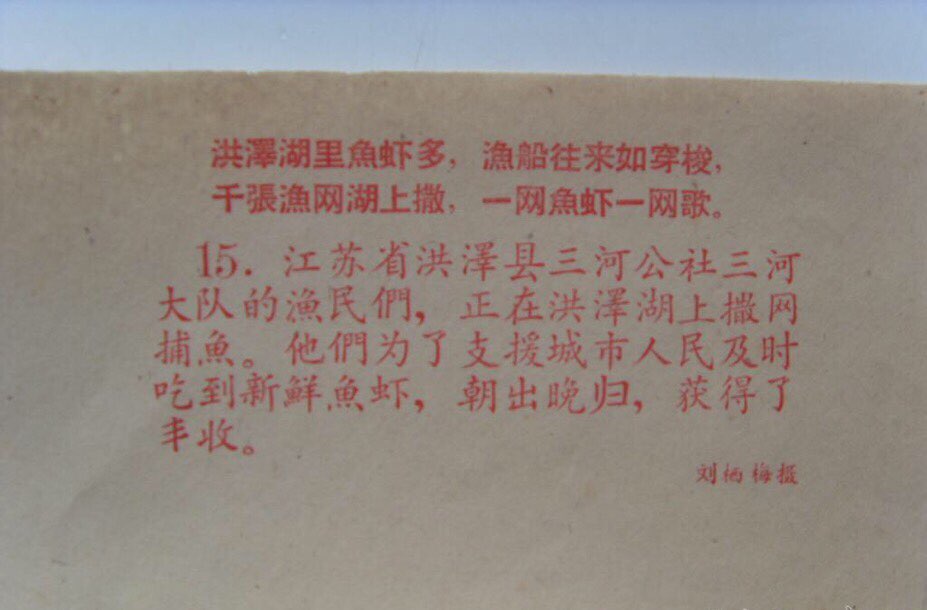 洪澤湖里魚虾多，漁船往来如穿梭，
千張漁网湖上撒，一网魚虾一网歌。
15. 江苏省洪澤县三河公社三河
大队的漁民們，正在洪澤湖上撒网
捕魚。他們为了支援城市人民及时
吃到新鮮魚虾，朝出晚归，获得了
丰收。
刘栖梅摄